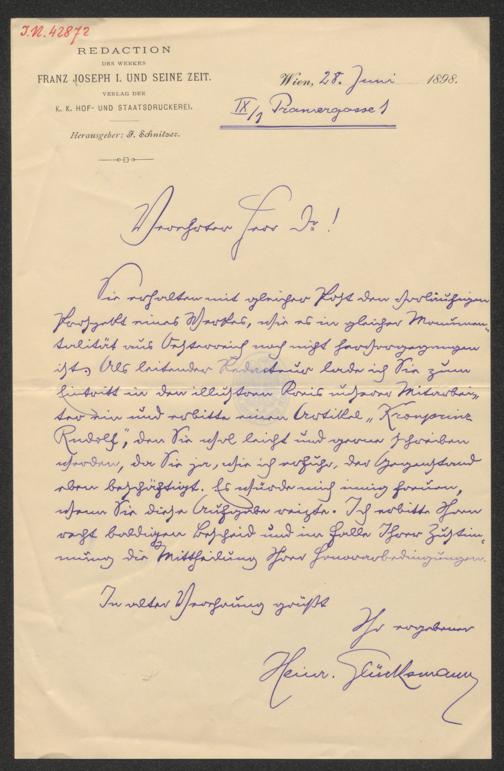 I.N. 42872
REDACTION
DES WERKES
FRANZ JOSEPH I. UND SEINE ZEIT.
VERLAG DER
K. K. HOF- UND STAATSDRUCKEREI.
Herausgeber: J. Schnitzer.
Wien, 28. Juni 1898.
IX/1 Pramergasse 1
Verehrter Herr Dr!
Sie erhalten mit gleicher Post den vorläufigen
Prospekt eines Werkes, wie es in gleicher Monumen-
talität aus Österreich noch nicht hervorgegangen
ist. Als leitender Redacteur lade ich Sie zum
Eintritt in den illustren Kreis unserer Mitarbei-
ter ein und erbitte einen Artikel „Kronprinz
Rudolf", den Sie wol leicht und gerne schreiben
werden, da Sie ja, wie ich erfuhr, der Gegenstand
eben beschäftigt. Es würde mich innig freuen,
wenn Sie diese Aufgabe reizte. Ich erbitte Ihren
recht baldigen Bescheid und im Falle Ihrer Zustim-
mung die Mittheilung Ihrer Honorarbedingungen.
In alter Verehrung grüßt
Ihr ergebener
Heinr. Glücksmann